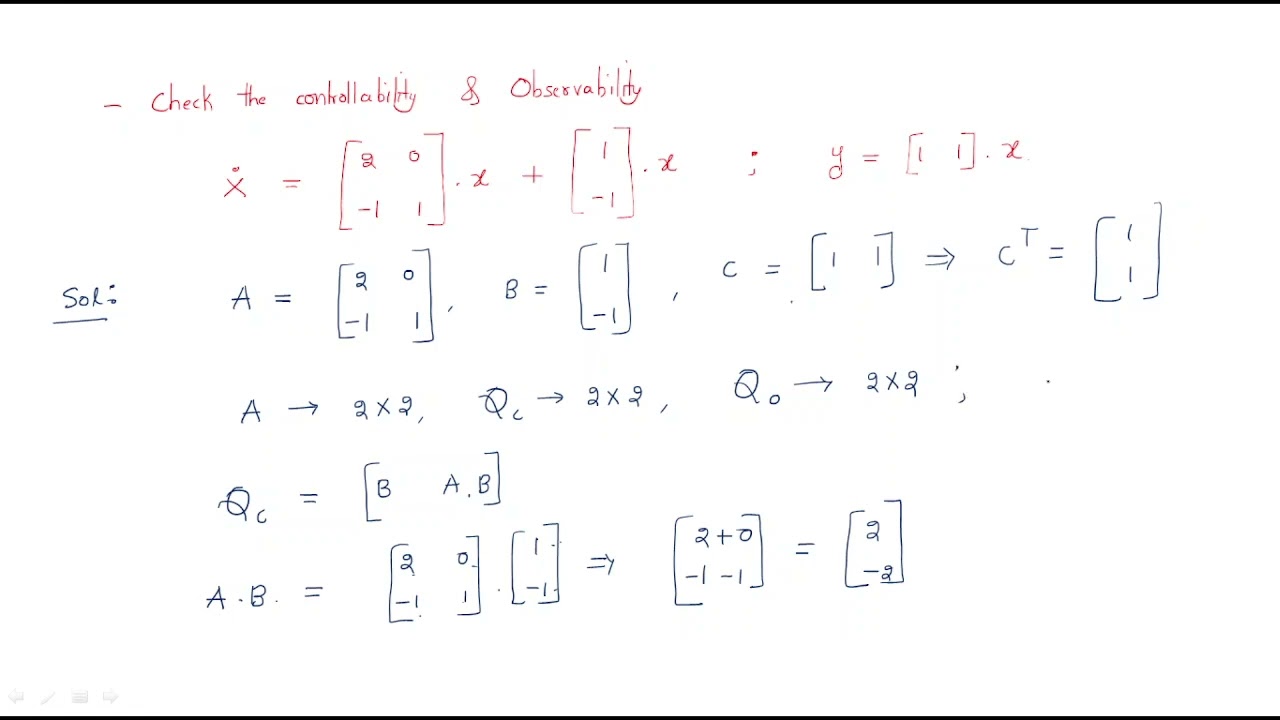 - Check the controllability & Observability
ẋ = [2 0; -1 1] . x + [1; -1] . x ; y = [1 1] . x
Sol: A = [2 0; -1 1], B = [1; -1], C = [1 1] ⇒ C^T = [1; 1]
A → 2×2, Q_c → 2×2, Q_o → 2×2 ;
Q_c = [B A.B]
A.B. = [2 0; -1 1] . [1; -1] ⇒ [2+0; -1-1] = [2; -2]